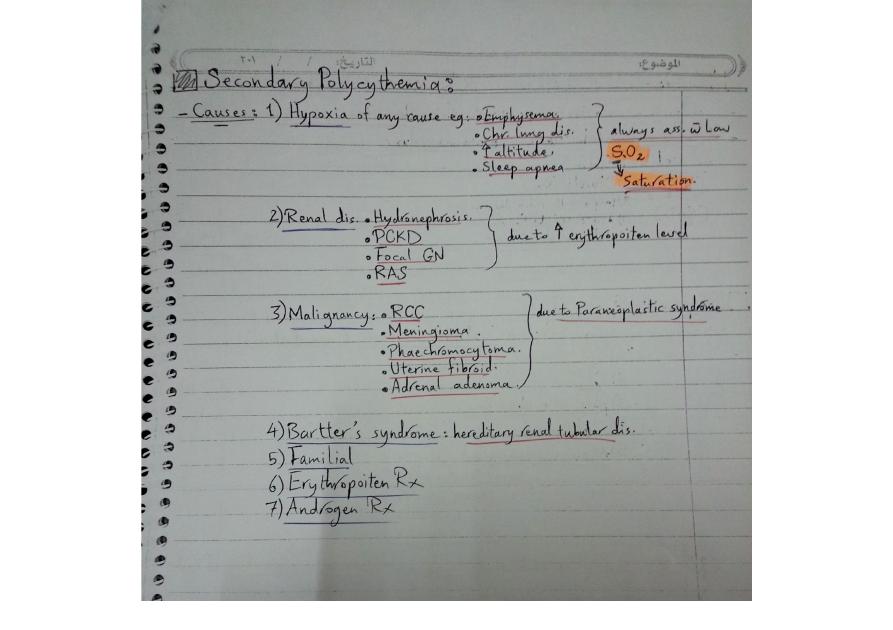 الموضوع: التاريخ: / / ٢٠١
Secondary Polycythemia:
- Causes: 1) Hypoxia of any cause eg: • Emphysema.
• Chr. lung dis.
• ↑ altitude.
• Sleep apnea
always ass. w̄ Low
S.O₂
↓
Saturation.
2) Renal dis. • Hydronephrosis.
• PCKD
• Focal GN
• RAS
due to ↑ erythropoiten level
3) Malignancy: • RCC
• Meningioma.
• Phaechromocytoma.
• Uterine fibroid.
• Adrenal adenoma.
due to Paraneoplastic syndrome
4) Bartter's syndrome: hereditary renal tubular dis.
5) Familial
6) Erythropoiten Rx
7) Androgen Rx